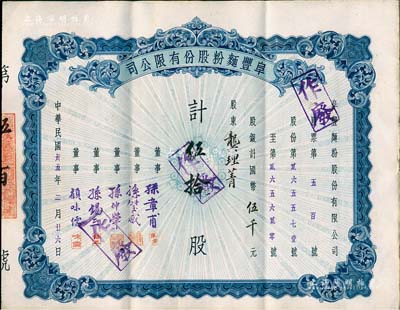 阜豐麵粉股份有限公司
阜豐麵粉股份有限公司
股票第 五百 號
股份第貳六五五七壹號
至第貳六六二貳零號
股銀計國幣 伍千 元
股東 龔理菁
計 伍拾 股
董事 孫章甫
董事
董事 孫仲榮
董事 孫錫三
董事 顏味儒
中華民國卅五年二月廿六日
第 五百 號
作廢